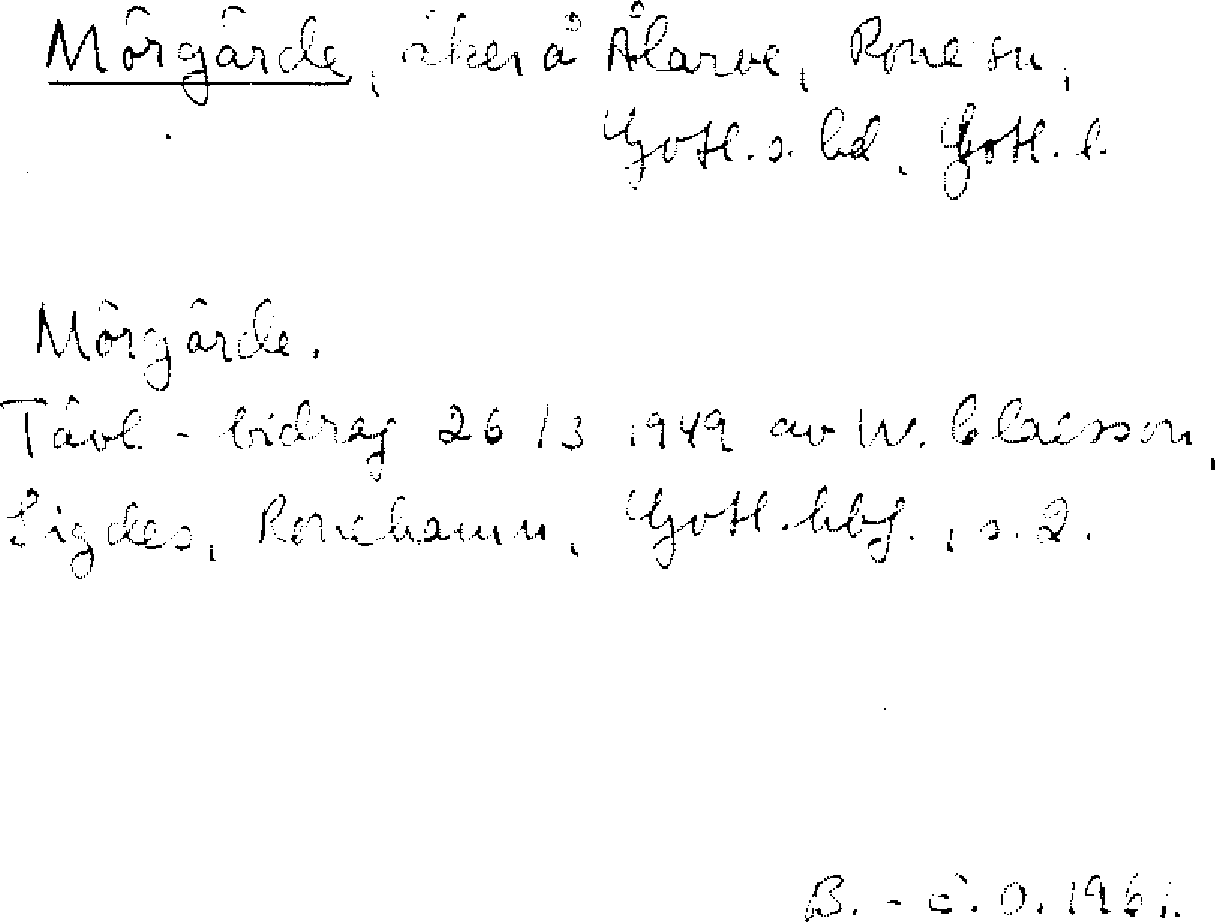 Mörgärde, åker å Ålarve, Rone sn,
Gotl. s. hd, Gotl. l.
Mörgärde.
Tävl-bidrag 26/3 1949 av W. Claesson,
Sigdes, Ronehamn, Gotl. hbf., s. 2.
B.-Å. O. 1961.